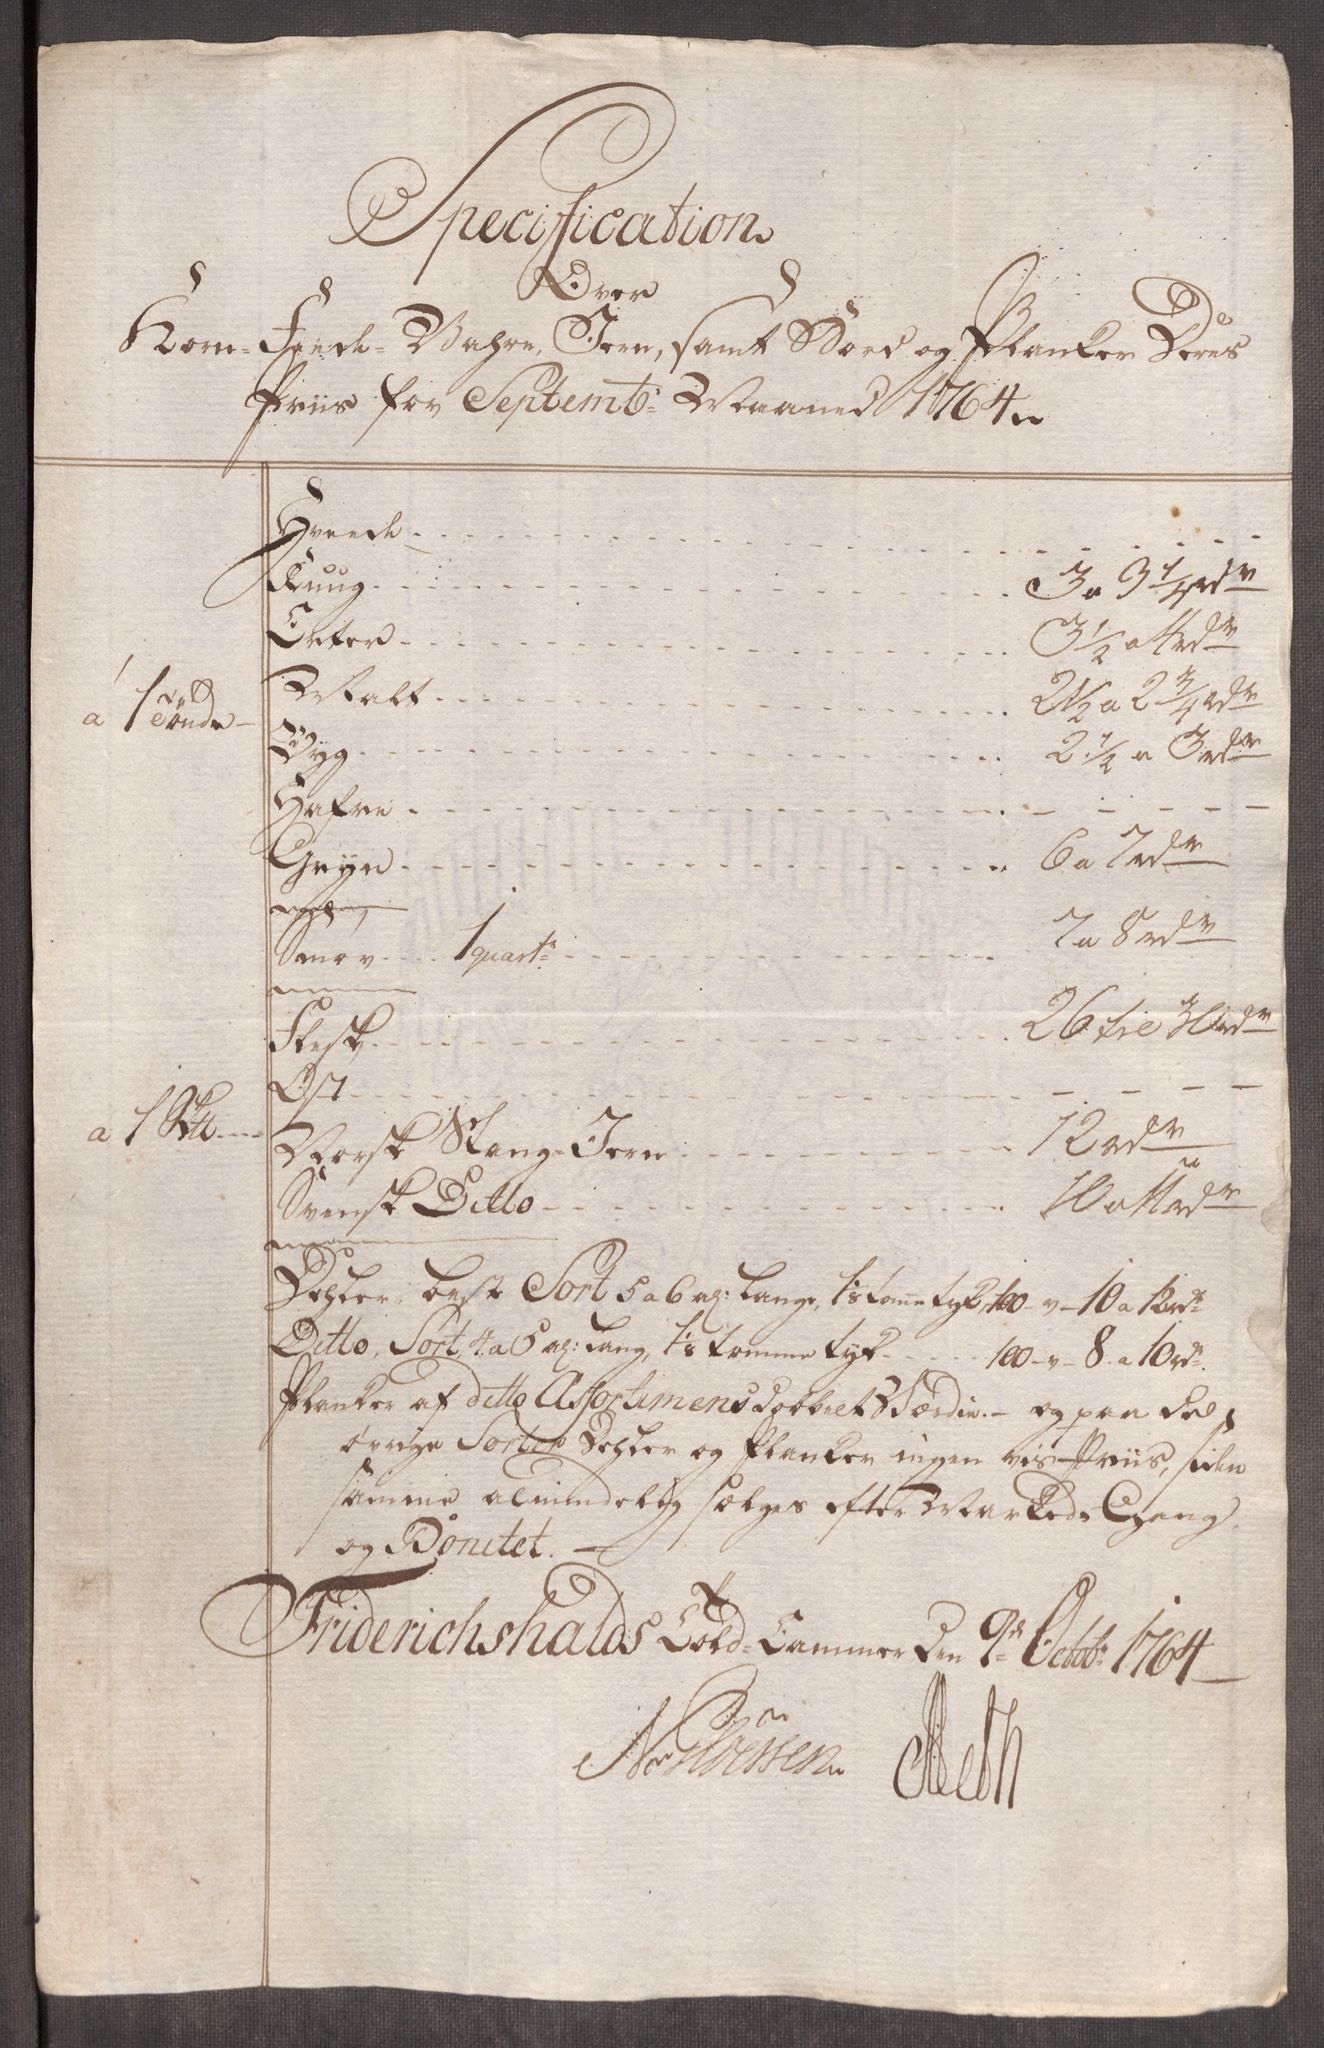 Specification
Over
Korn- Feede- Vahre, Jern, samt Bord og Planker Deres
Priis for Septembr: Maaned 1764.
Hveede
Ruug 3 a 3 1/4 rdr
Erter 3 1/2 a 4 rdr
a 1 Tönde
Malt 2 1/2 a 2 3/4 rdr
Byg 2 1/2 a 3 rdr
Hafre
Gryn 6 a 7 rdr
Smör 1 quart: 7 a 8 rdr
Flesk 26 til 30 rdr
Ost
a 1 Sk℔
Norsk Stang-Jern 12 rdr
Svensk Ditto 10 a 11 rdr
Dehler, beste Sort 5 a 6 al: lange, 1 1/8 tomme tyk, 100 - v - 10 a 12 rdr
Ditto, Sort 4 a 5 al: lang, 1 1/8 tomme tyk 100 - v - 8 a 10 rdr.
Planker af ditto Assortiment dobbelt Værdie. - og paa de
övrige Sorter Dehler og Planker ingen vis Priis, siden
samme almindelig sælges efter Markeds Gang
og Bonitet. -
Friderichshalds Told-Cammer den 9de Octobr: 1764